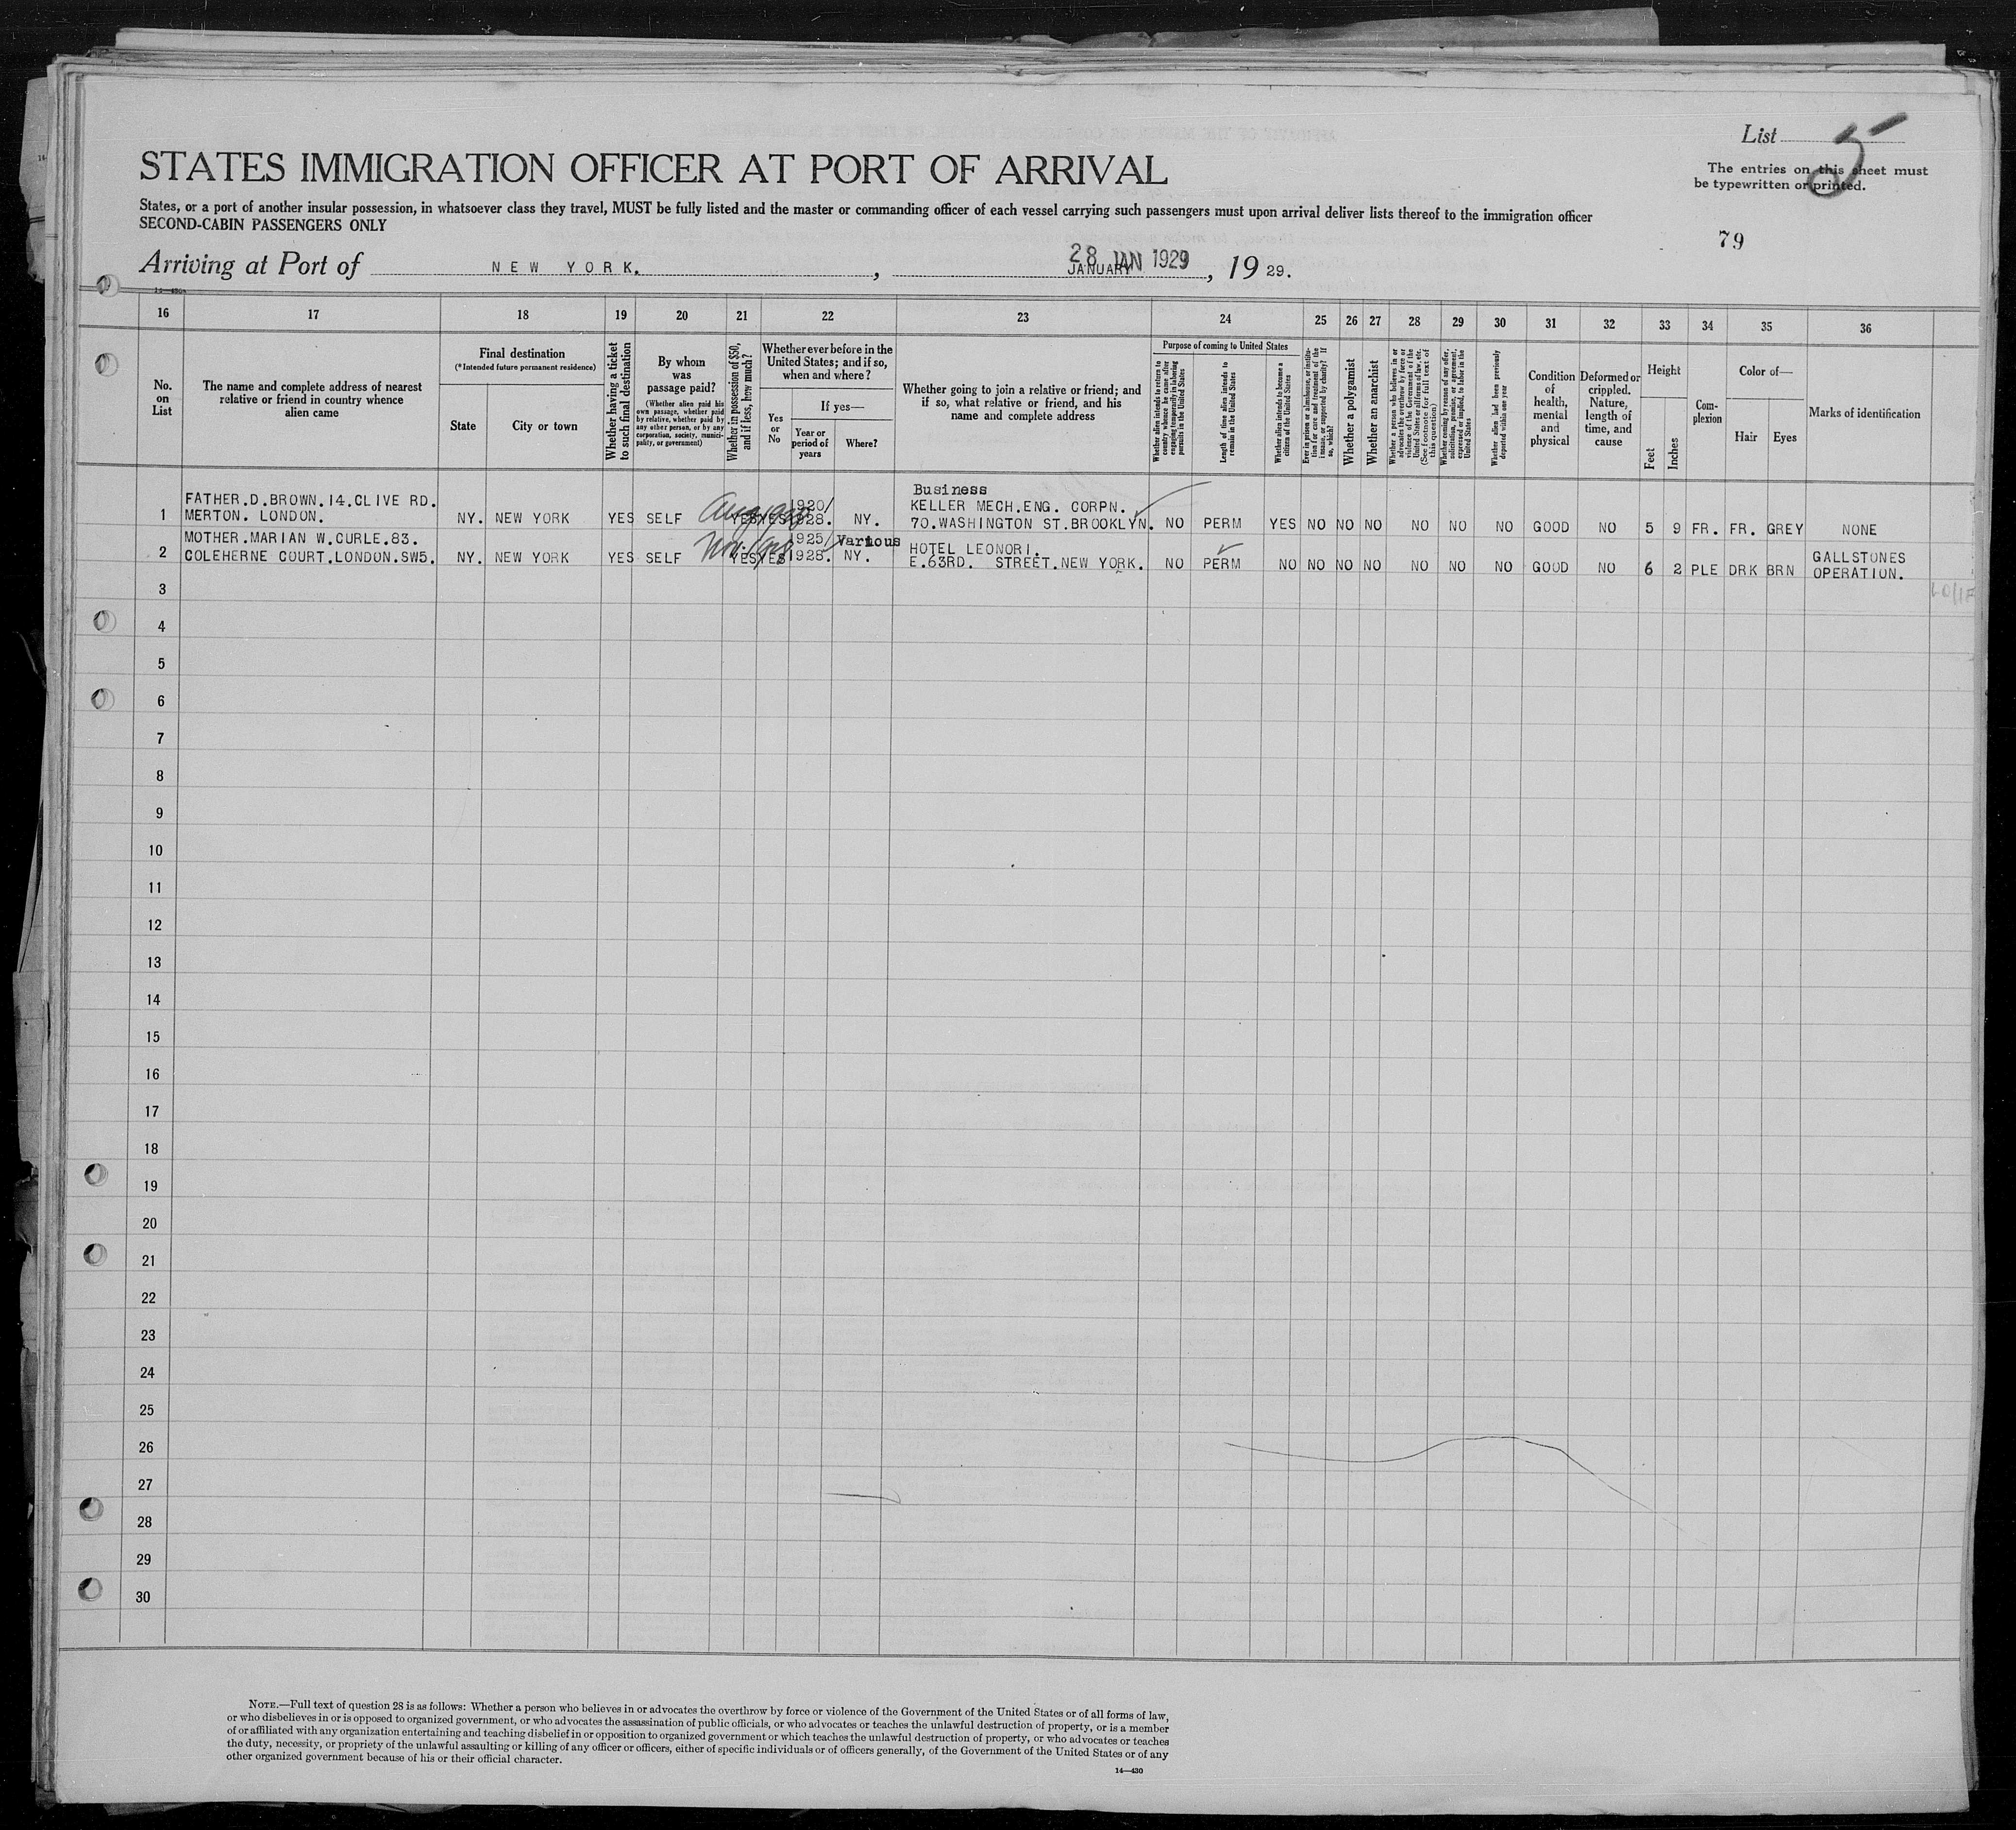 List 5
STATES IMMIGRATION OFFICER AT PORT OF ARRIVAL
The entries on this sheet must
be typewritten or printed.
States, or a port of another insular possession, in whatsoever class they travel, MUST be fully listed and the master or commanding officer of each vessel carrying such passengers must upon arrival deliver lists thereof to the immigration officer
SECOND-CABIN PASSENGERS ONLY
79
Arriving at Port of NEW YORK. , JANUARY 28 JAN 1929 , 19 29.
14—430
16 17 18 19 20 21 22 23 24 25 26 27 28 29 30 31 32 33 34 35 36
No.
on
List
The name and complete address of nearest
relative or friend in country whence
alien came
Final destination
(*Intended future permanent residence)
State
City or town
Whether having a ticket
to such final destination
By whom
was
passage paid?
(Whether alien paid his
own passage, whether paid
by relative, whether paid by
any other person, or by any
corporation, society, munici-
pality, or government)
Whether in possession of $50,
and if less, how much?
Whether ever before in the
United States; and if so,
when and where?
Yes
or
No
If yes—
Year or
period of
years
Where?
Whether going to join a relative or friend; and
if so, what relative or friend, and his
name and complete address
Purpose of coming to United States
Whether alien intends to return to
country whence he came after
engaging temporarily in laboring
pursuits in the United States
Length of time alien intends to
remain in the United States
Whether alien intends to become a
citizen of the United States
Ever in prison or almshouse, or institu-
tion for care and treatment of the
insane, or supported by charity? If
so, which?
Whether a polygamist
Whether an anarchist
Whether a person who believes in or
advocates the overthrow by force or
violence of the Government of the
United States or all forms of law, etc.
(See footnote for full text of
this question)
Whether coming by reason of any offer,
solicitation, promise, or agreement,
expressed or implied, to labor in the
United States
Whether alien had been previously
deported within one year
Condition
of
health,
mental
and
physical
Deformed or
crippled.
Nature,
length of
time, and
cause
Height
Feet
Inches
Com-
plexion
Color of—
Hair
Eyes
Marks of identification
1 FATHER.D.BROWN.14.CLIVE RD.
MERTON. LONDON. NY. NEW YORK YES SELF YES YES 1920/
1928. NY. Business
KELLER MECH.ENG. CORPN.
70.WASHINGTON ST.BROOKLYN. NO PERM YES NO NO NO NO NO NO GOOD NO 5 9 FR. FR. GREY NONE
2 MOTHER.MARIAN W.CURLE.83.
COLEHERNE COURT.LONDON.SW5. NY. NEW YORK YES SELF YES YES 1925/
1928. Various
NY. HOTEL LEONORI.
E.63RD. STREET.NEW YORK. NO PERM NO NO NO NO NO NO NO GOOD NO 6 2 PLE DRK BRN GALLSTONES
OPERATION.
3
4
5
6
7
8
9
10
11
12
13
14
15
16
17
18
19
20
21
22
23
24
25
26
27
28
29
30
NOTE.—Full text of question 28 is as follows: Whether a person who believes in or advocates the overthrow by force or violence of the Government of the United States or of all forms of law,
or who disbelieves in or is opposed to organized government, or who advocates the assassination of public officials, or who advocates or teaches the unlawful destruction of property, or is a member
of or affiliated with any organization entertaining and teaching disbelief in or opposition to organized government or which teaches the unlawful destruction of property, or who advocates or teaches
the duty, necessity, or propriety of the unlawful assaulting or killing of any officer or officers, either of specific individuals or of officers generally, of the Government of the United States or of any
other organized government because of his or their official character.
14—430